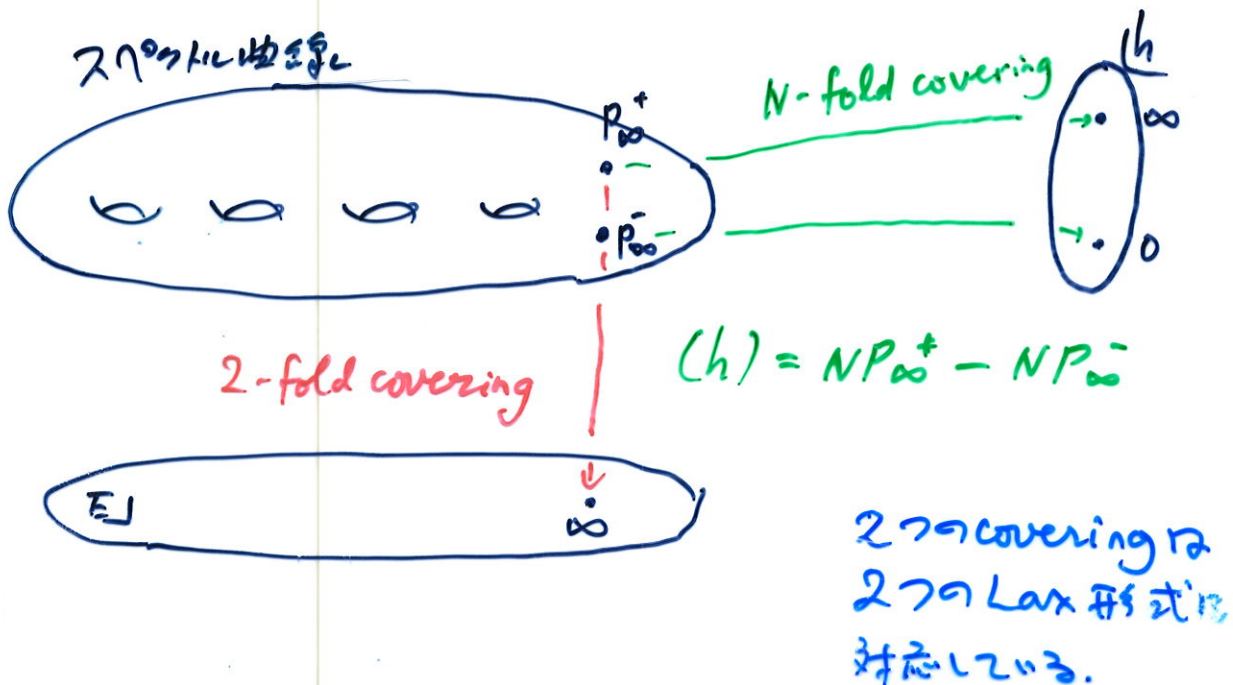 スペクトル曲線
P∞⁺
N-fold covering
h
∞
P∞⁻
0
2-fold covering
(h) = NP∞⁺ - NP∞⁻
E
∞
2つのcoveringは
2つのLax形式に
対応している.